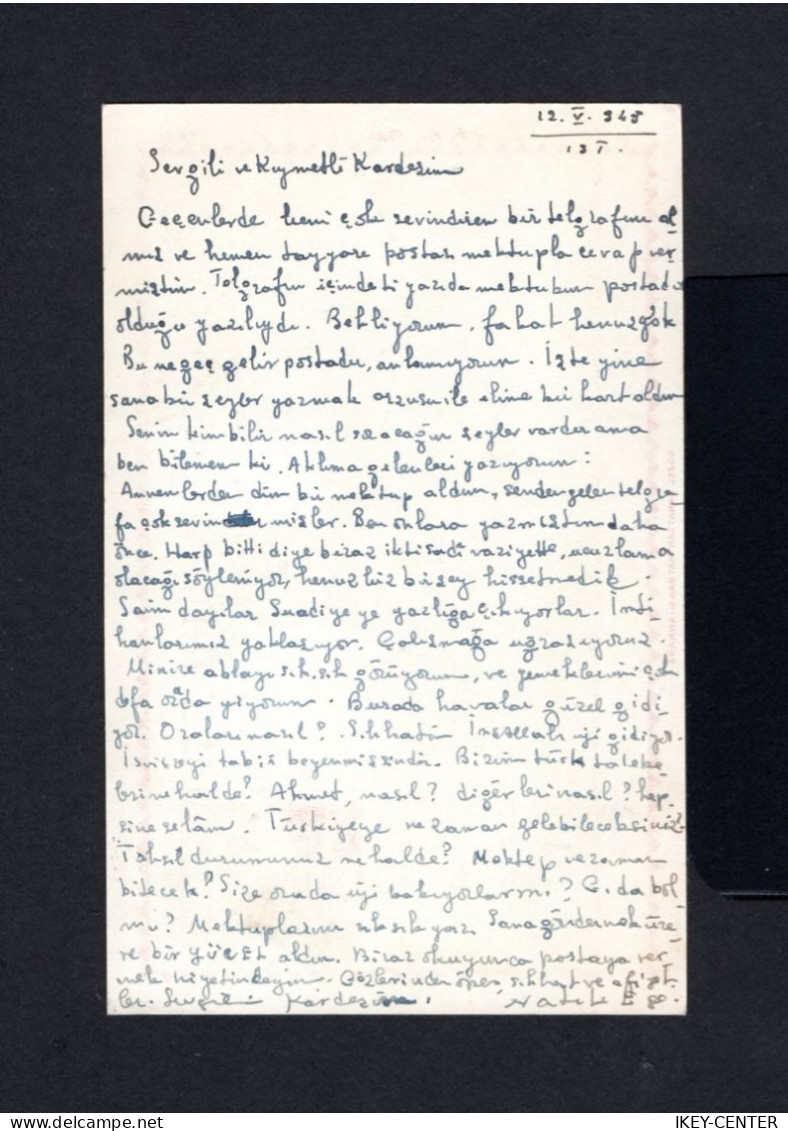 12. V. 945
İST.
Sevgili ve Kıymetli Kardeşim
Geçenlerde beni çok sevindiren bir telgrafını al
mış ve hemen tayyare postası mektupla cevap ver
miştim. Telgrafın içindeki yazıda mektubun postada
olduğu yazılıydı. Bekliyorum, fakat henuz yok
Bu ne geç gelir postadır, anlamıyorum. İşte yine
sana bir şeyler yazmak arzusu ile elime bir kart aldım
Senin kimbilir nasıl soracağın şeyler vardır ama
ben bilemem ki. Aklıma gelenleri yazıyorum:
Annenlerden dün bir mektup aldım, senden gelen telgra
fa çok sevinmişler. Ben onlara yazmıştım daha
önce. Harp bitti diye biraz iktisadî vaziyette, ucuzlama
olacağı söyleniyor, henuz biz bir şey hissetmedik.
Saim dayılar Suadiye ye yazlığa çıkıyorlar. İmti
hanlarımız yaklaşıyor. Çalışmağa uğraşıyoruz.
Münire ablayı sık sık görüyorum, ve yemeklerimi çok
defa orada yiyorum. Burada havalar güzel gidi
yor. Oraları nasıl? Sıhhatin İnşallah iyi gidiyor.
İsviçreyi tabiî beğenmişsindir. Bizim türk talebe
leri ne halde? Ahmet, nasıl? diğerleri nasıl? hep
sine selâm. Türkiyeye ne zaman gelebileceksiniz?
Tahsil durumunuz ne halde? Mektep ne zaman
bitecek? Size orada iyi bakıyorlar mı? Gıda bol
mu? Mektuplarını sık sık yaz. Sana göndermek üze
re bir YÜCEL aldım. Biraz okuyunca postaya ver
mek niyetindeyim. Gözlerinden öper, sıhhat ve afiyet
ler. Sevgili Kardeşim.
IKEY-CENTER